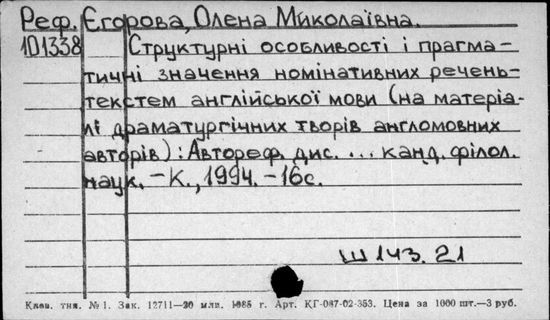 Реф. Єгорова, Олена Миколаївна.
1D1338 Структурні особливості і прагма-
тичні значення номінативних речень-
текстем англійської мови (на матеріа-
лі драматургічних творів англомовних
авторів): Автореф. дис. ... канд. філол.
наук. – К., 1994. – 16с.
Ш 143. 21
тип. № 1. Зак. 12711—20 млн. 1985 г. Арт. КГ-087-02-353. Цена за 1000 шт.—3 руб.